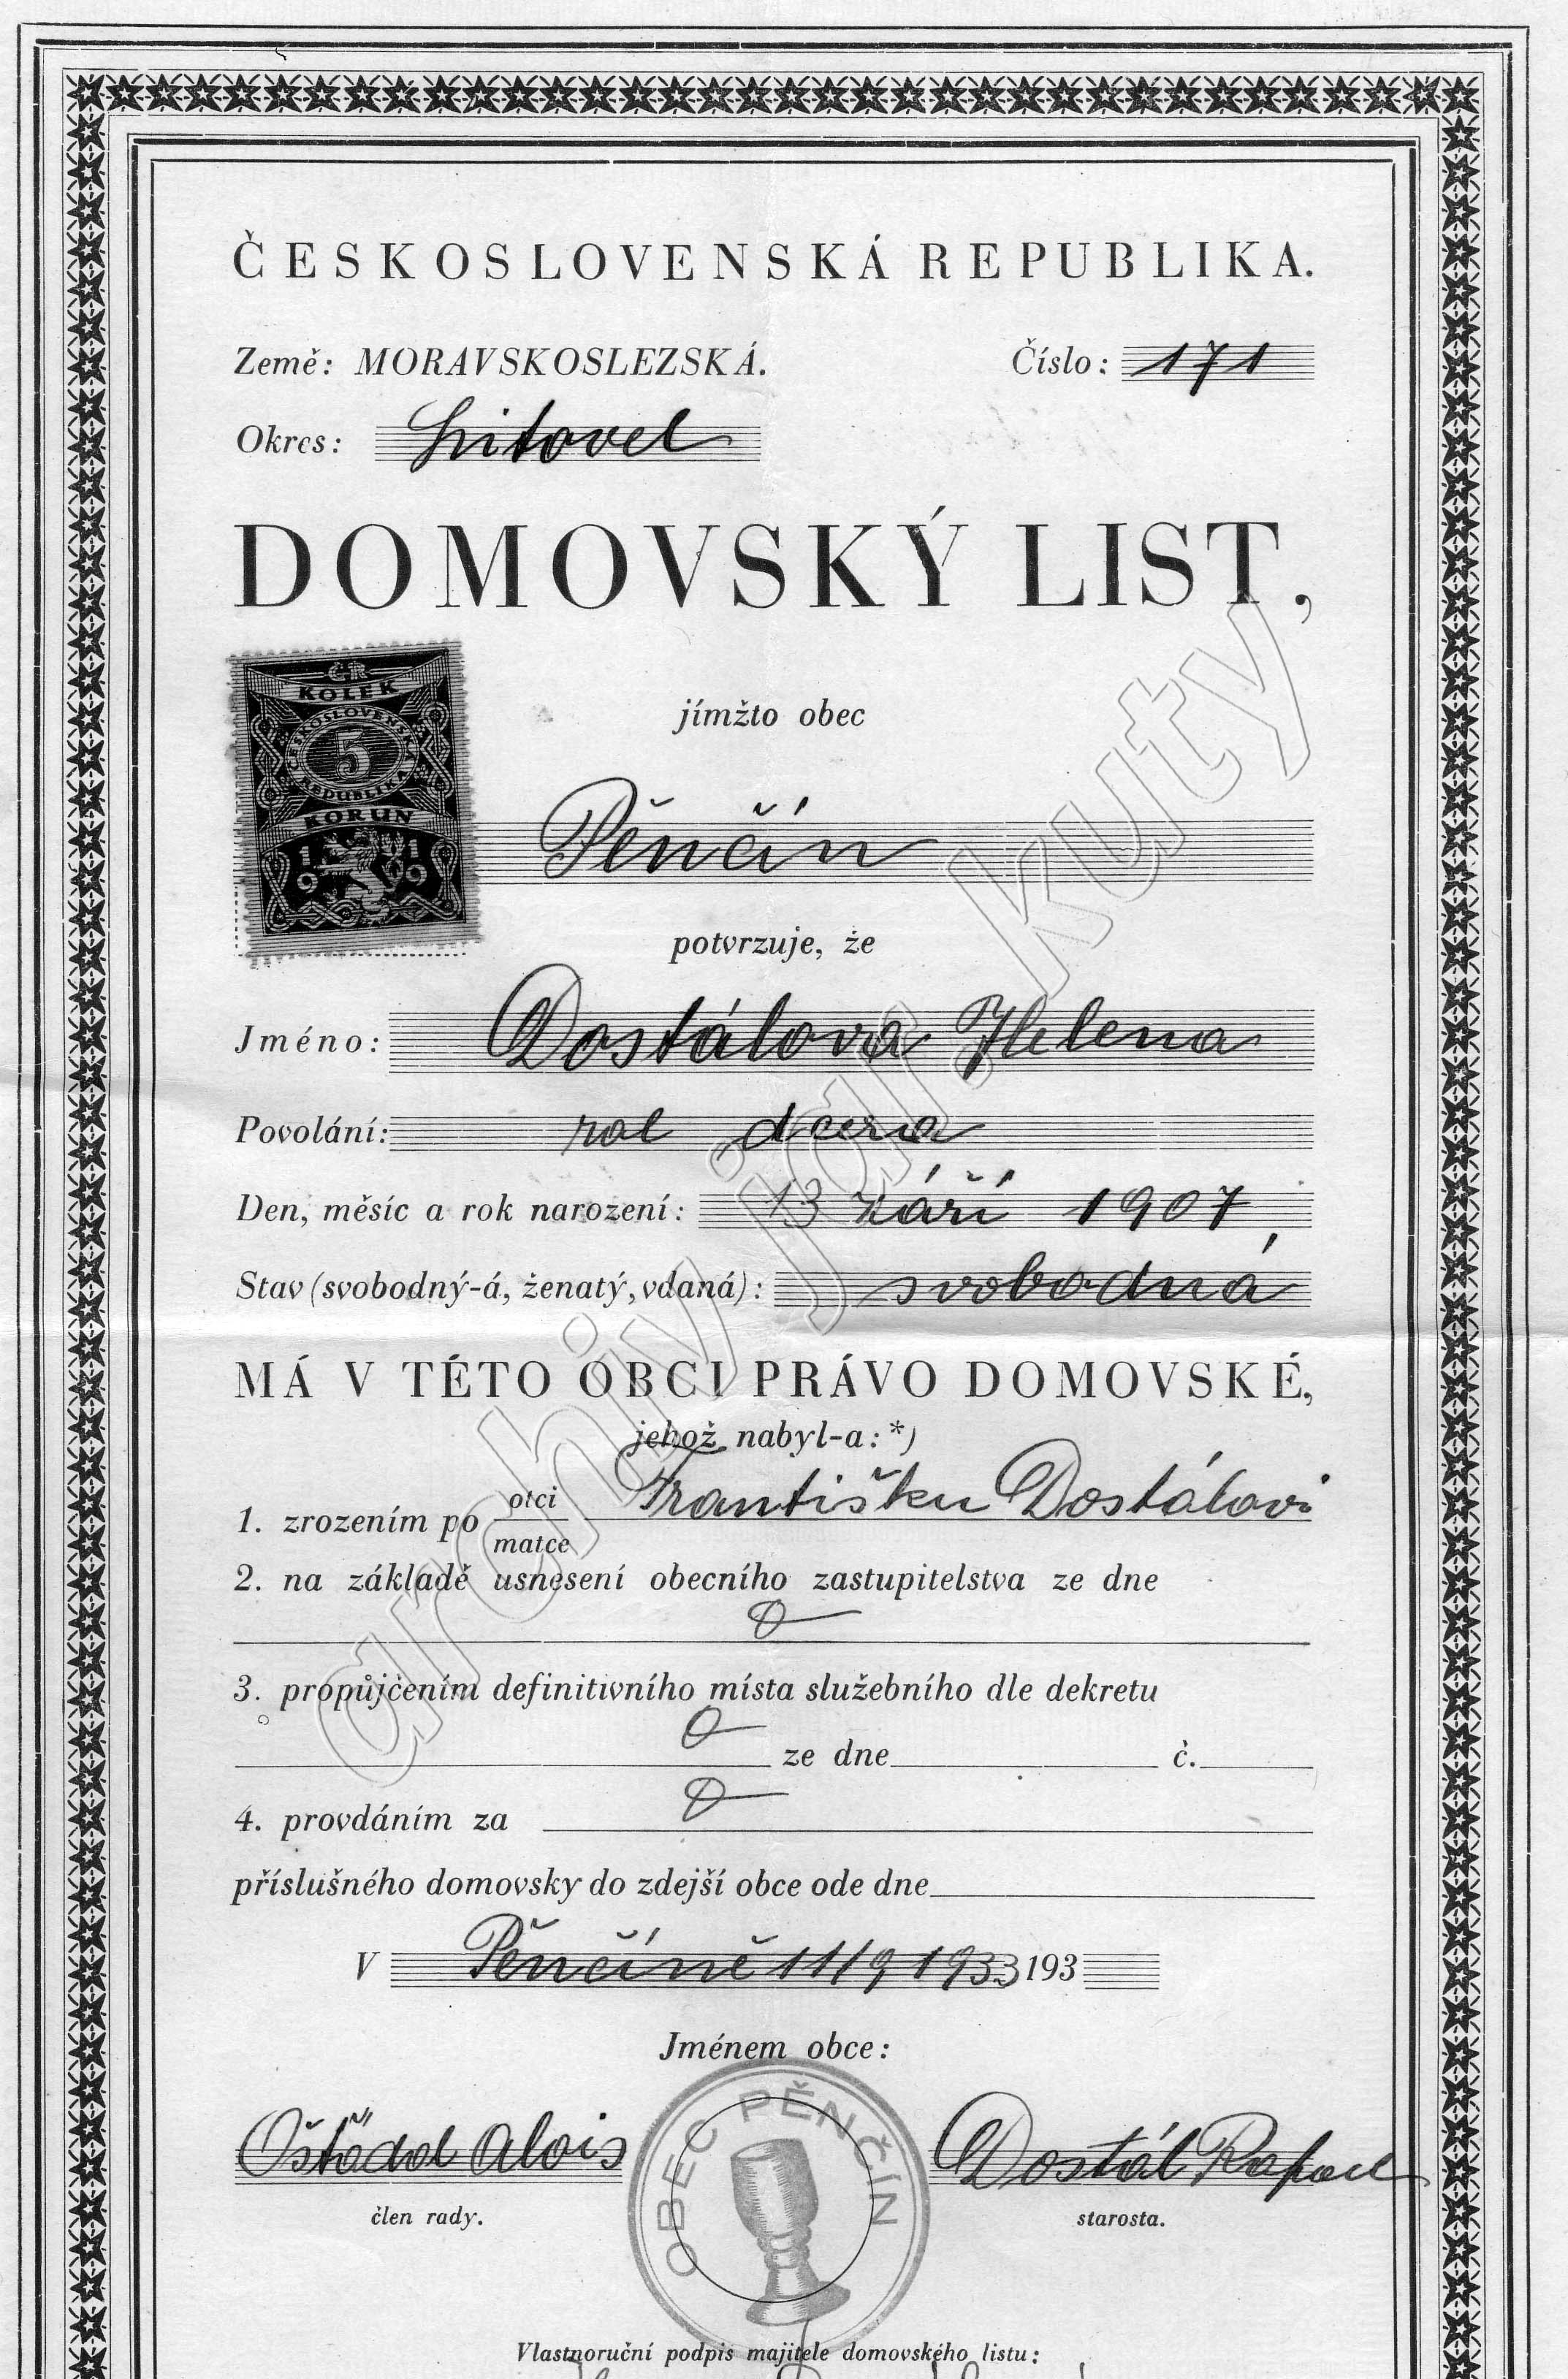 ČESKOSLOVENSKÁ REPUBLIKA.
Země: MORAVSKOSLEZSKÁ. Číslo: 171
Okres: Litovel
DOMOVSKÝ LIST,
ČR
KOLEK
ČESKOSLOVENSKÁ
5
REPUBLIKA
KORUN
1919
jímžto obec
Pěnčín
potvrzuje, že
Jméno: Dostálova Helena
Povolání: rol dcera
Den, měsíc a rok narození: 13 září 1907
Stav (svobodný-á, ženatý, vdaná): svobodná
MÁ V TÉTO OBCI PRÁVO DOMOVSKÉ,
jehož nabyl-a: *)
1. zrozením po otci Františku Dostálovi
matce
2. na základě usnesení obecního zastupitelstva ze dne
3. propůjčením definitivního místa služebního dle dekretu
ze dne č.
4. provdáním za
příslušného domovsky do zdejší obce ode dne
V Pěnčíně 11/9 1933 193
Jménem obce:
Ošťádal Alois Dostál Rafael
člen rady. starosta.
OBEC PĚNČÍN
Vlastnoruční podpis majitele domovského listu:
archiv jar. kuty